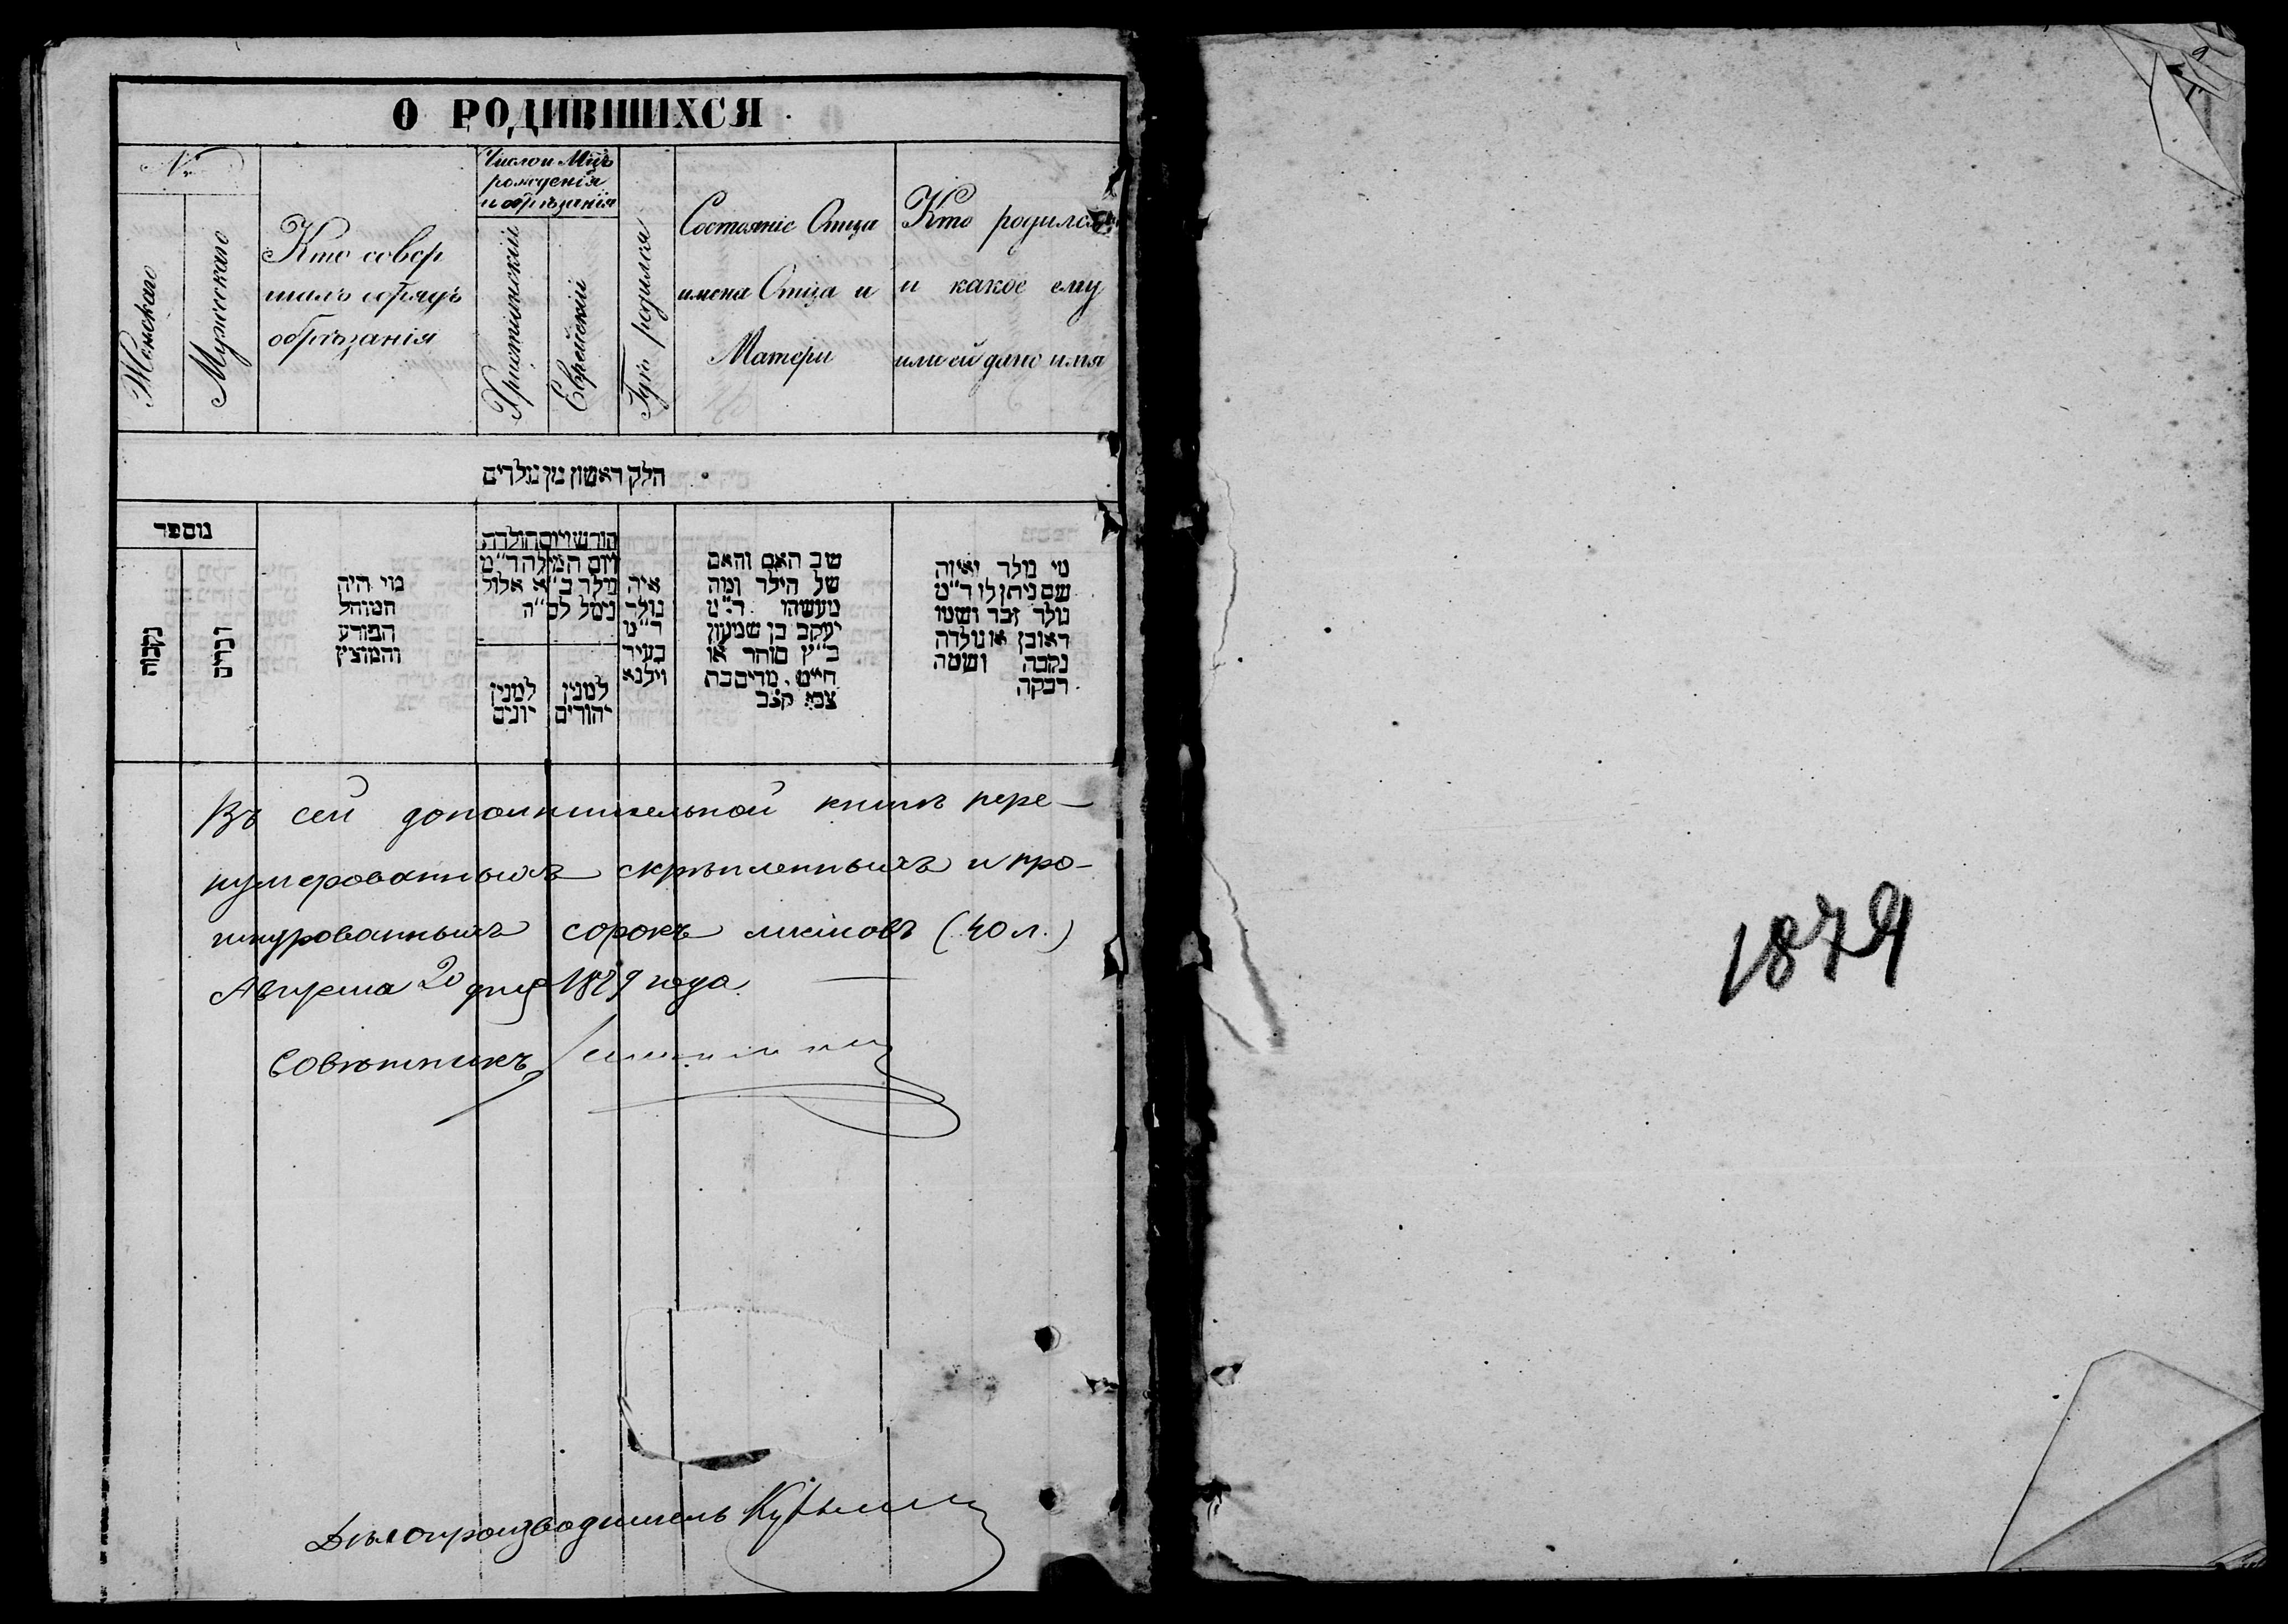 О РОДИВШИХСЯ
№
Женскаго
Мужескаго
Кто совер
шалъ обрядъ
обрѣзанія
Число и Мцъ
рожденія
и обрѣзанія
Христіянскій
Еврейскій
Гдѣ родился
Состояніе Отца
имена Отца и
Матери
Кто родился
и какое ему
или ей дано имя
חלק ראשון מן נולדים
מספר
נקבות
זכרים
מי היה
המוהל
הפורע
והמוצץ
חודש ויום הולדה
ויום המילה ד״מ
נולד ב״א אלול
נימל לס״ה
למנין
יונים
למנין
יהודים
איה
נולד
ד״מ
בעיר
ווילנא
שב האם והאם
של הילד ומה
מעשהו ד״מ
יעקב בן שמעון
כ״ץ סוחר או
חייט, מרים בת
צבי קצב
מי נולד ואיזה
שם ניתן לו ד״מ
נולד זכר ושמו
ראובן או נולדה
נקבה ושמה
רבקה
Въ сей дополнительной книгѣ пере-
нумерованныхъ скрѣпленныхъ и про-
шнурованныхъ сорокъ листовъ (40 л.)
Августа 20 дня 1879 года.
Совѣтникъ
Дѣлопроизводитель
1879